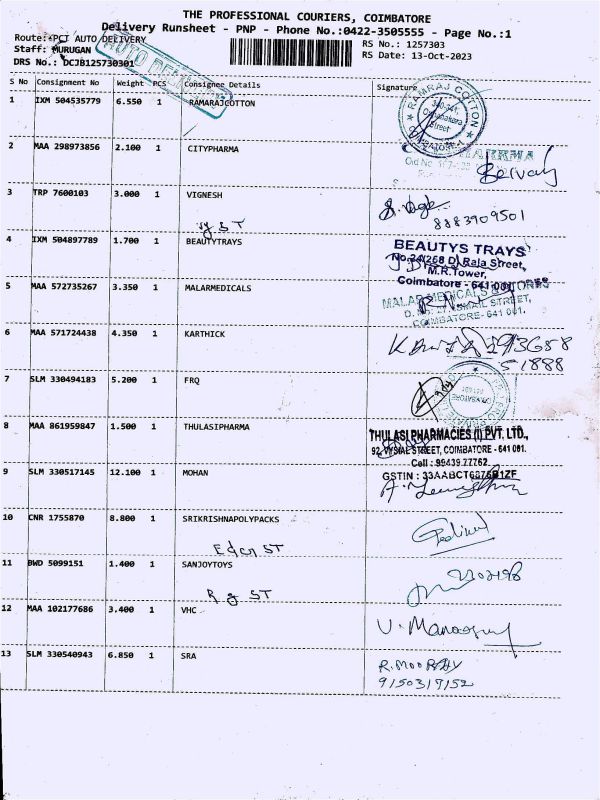 THE PROFESSIONAL COURIERS, COIMBATORE
Delivery Runsheet - PNP - Phone No.:0422-3505555 - Page No.:1
Route: PCT AUTO DELIVERY
RS No.: 1257303
Staff: MURUGAN
RS Date: 13-Oct-2023
DRS No.: DCJB125730301
AUTO DELIVERY
S No Consignment No Weight PCS Consignee Details Signature
1 IXM 504535779 6.550 1 RAMARAJCOTTON
RAMRAJ COTTON
Street
2 MAA 298973856 2.100 1 CITYPHARMA
Old No.
3 TRP 7600103 3.000 1 VIGNESH
8883909501
ST
4 IXM 504897789 1.700 1 BEAUTYTRAYS
BEAUTYS TRAYS
No.24(268 D) Raja Street,
M.R. Tower,
Coimbatore - 641 001.
5 MAA 572735267 3.350 1 MALARMEDICALS
MALAR MEDICALS STORES
STREET,
COIMBATORE - 641 001.
6 MAA 571724438 4.350 1 KARTHICK
51888
7 SLM 330494183 5.200 1 FRQ
8 MAA 861959847 1.500 1 THULASIPHARMA
THULASI PHARMACIES (I) PVT. LTD.,
92, VYSIAL STREET, COIMBATORE - 641 001.
Cell : 99439 77762
9 SLM 330517145 12.100 1 MOHAN
GSTIN :
10 CNR 1755870 8.800 1 SRIKRISHNAPOLYPACKS
ST
11 BWD 5099151 1.400 1 SANJOYTOYS
R g ST
12 MAA 102177686 3.400 1 VHC
13 SLM 330540943 6.850 1 SRA
R.MOORTHY
9150317152